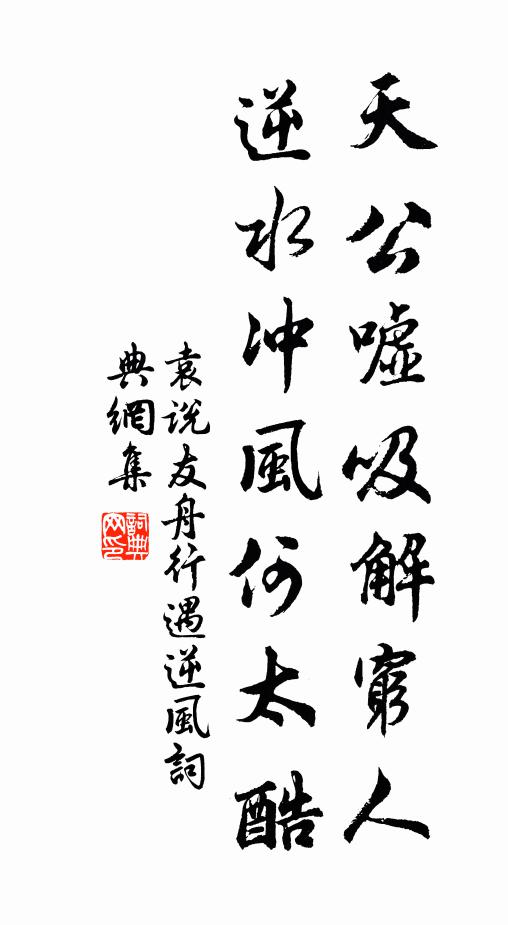 天公噓吸解窮人
逆水冲風何太酷
袁說友舟行遇逆風詞
典網集
詞典網印